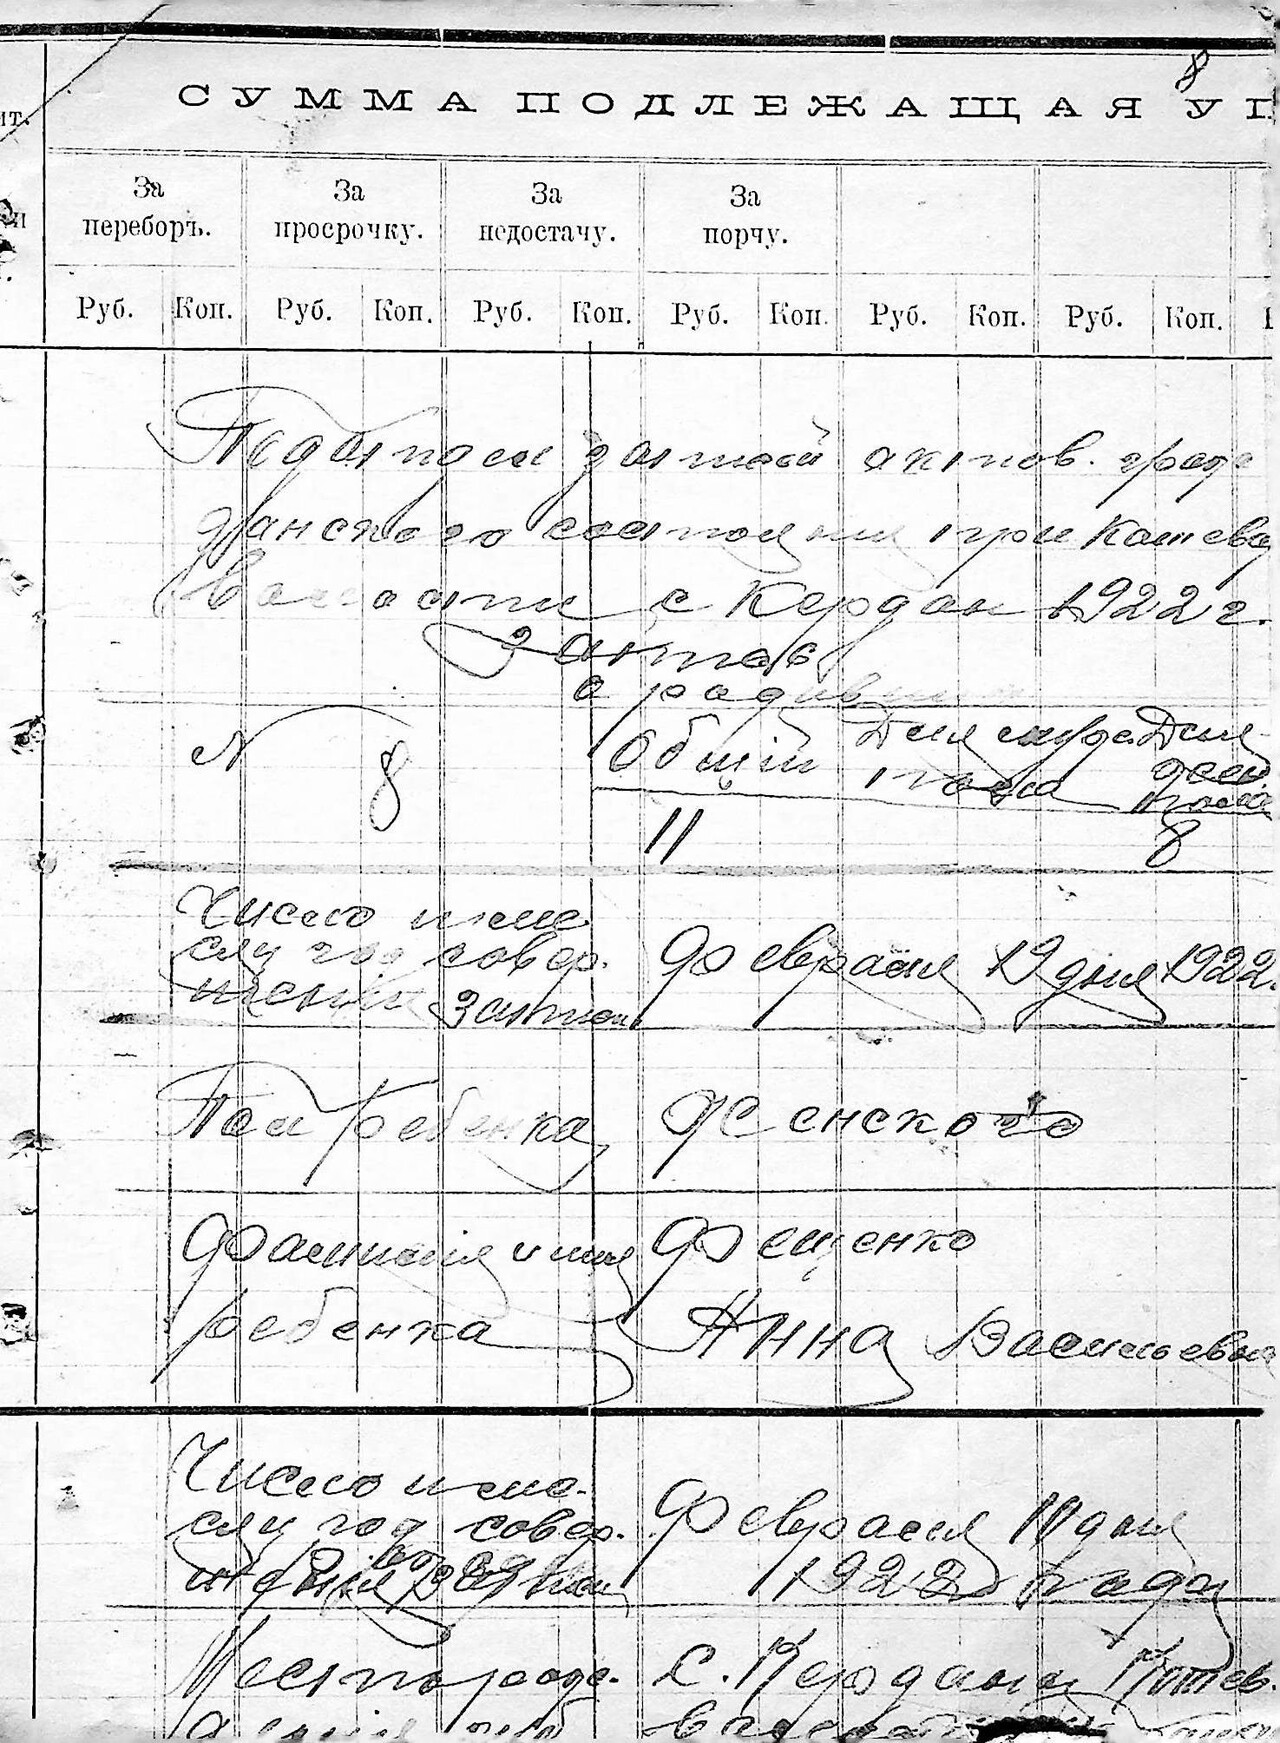 8
СУММА ПОДЛЕЖАЩАЯ УП
ит.
За переборъ.
За просрочку.
За недостачу.
За порчу.
Руб. Коп. Руб. Коп. Руб. Коп. Руб. Коп. Руб. Коп. Руб. Коп.
записей актов. граж
данского состояния при
Волости с Кердан 1922 г.
Запись
о родив
N 8
Общий Для мужс. Для жен.
пола пола
11 8
Число и ме-
сяц год совер.
шения записи
Февраля 19 дня 1922.
Пол Ребенка Женского
Фамилия и имя Фещенко
ребенка Анна Васильевна
Число и ме-
сяц год совер.
Февраля 10 дня
1922 года
Место рожде- С. Кердани Котев.